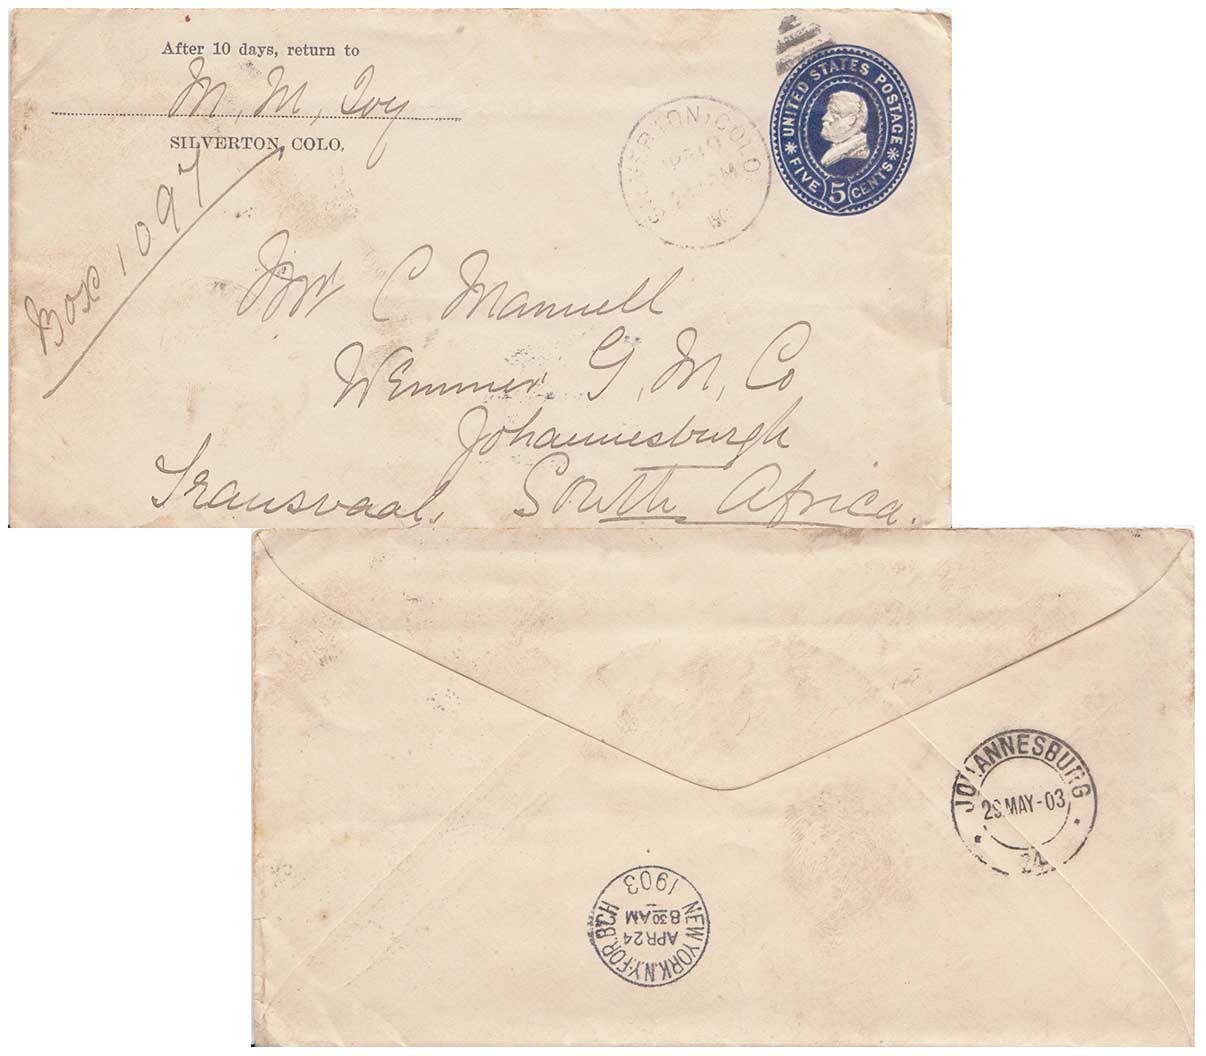 After 10 days, return to
M. M. Ivy
SILVERTON, COLO.
Box 1097
SILVERTON, COLO
UNITED STATES POSTAGE
FIVE 5 CENTS
Mr C Mannell
Wemmer G. M. Co
Johannesburgh
Transvaal, South Africa.
JOHANNESBURG
MAY-03
NEW YORK, N.Y. FOR BCH
APR 24
8 30 AM
1903